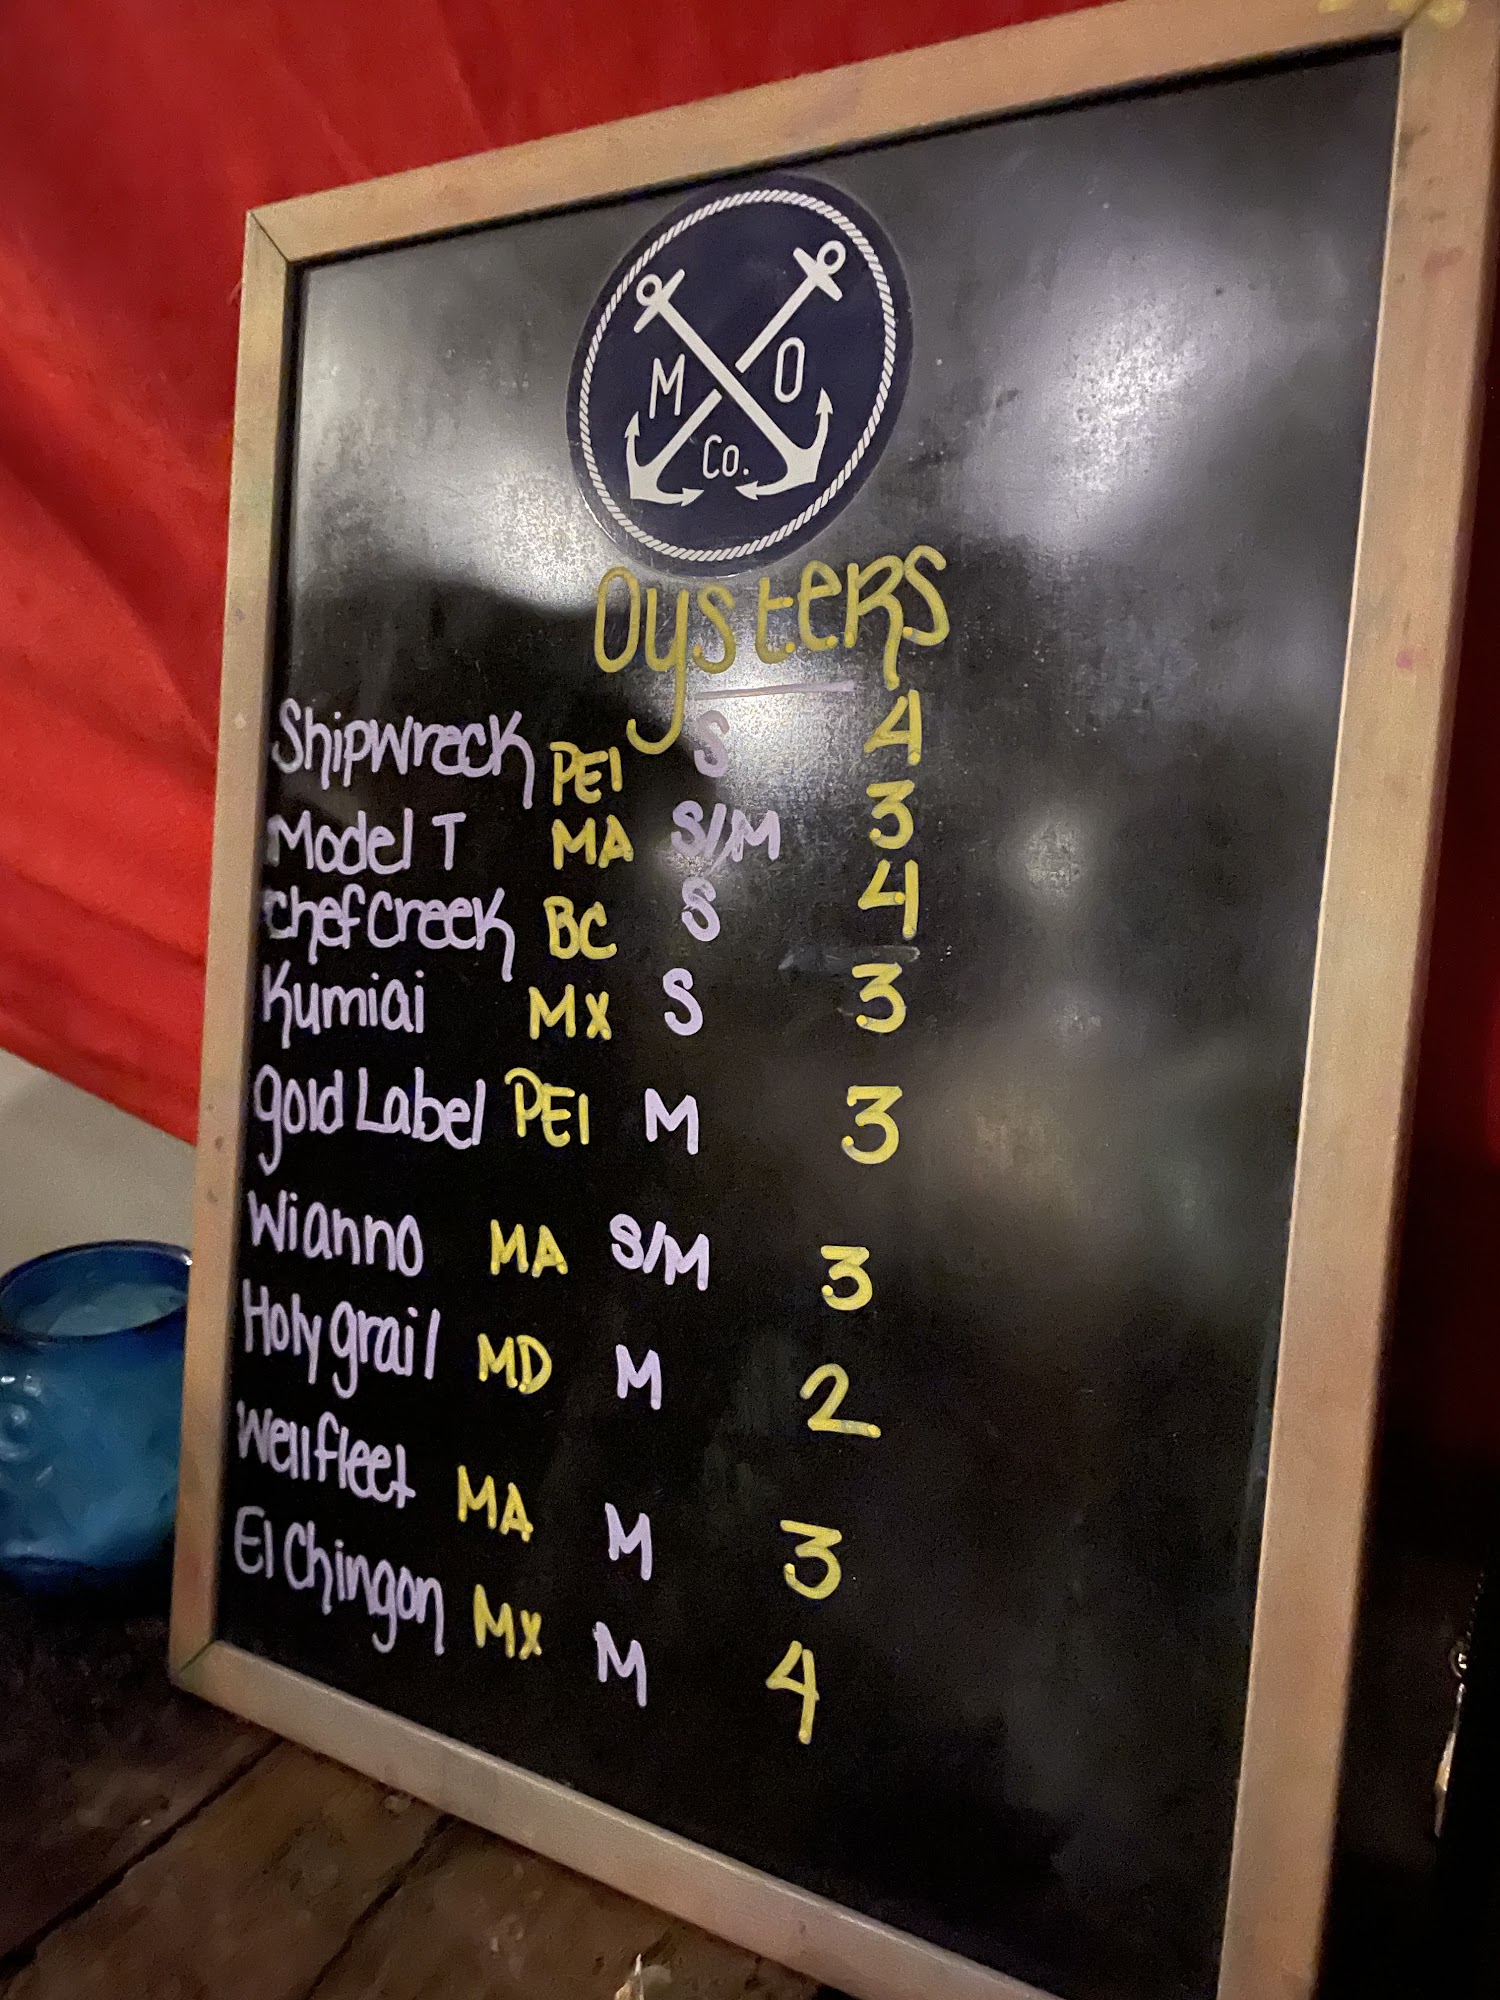 M O
Co.
Oysters
Shipwreck PEI S 4
Model T MA S/M 3
Chef Creek BC S 4
Kumiai MX S 3
gold Label PEI M 3
Wianno MA S/M 3
Holy grail MD M 2
Wellfleet MA M 3
El Chingon MX M 4